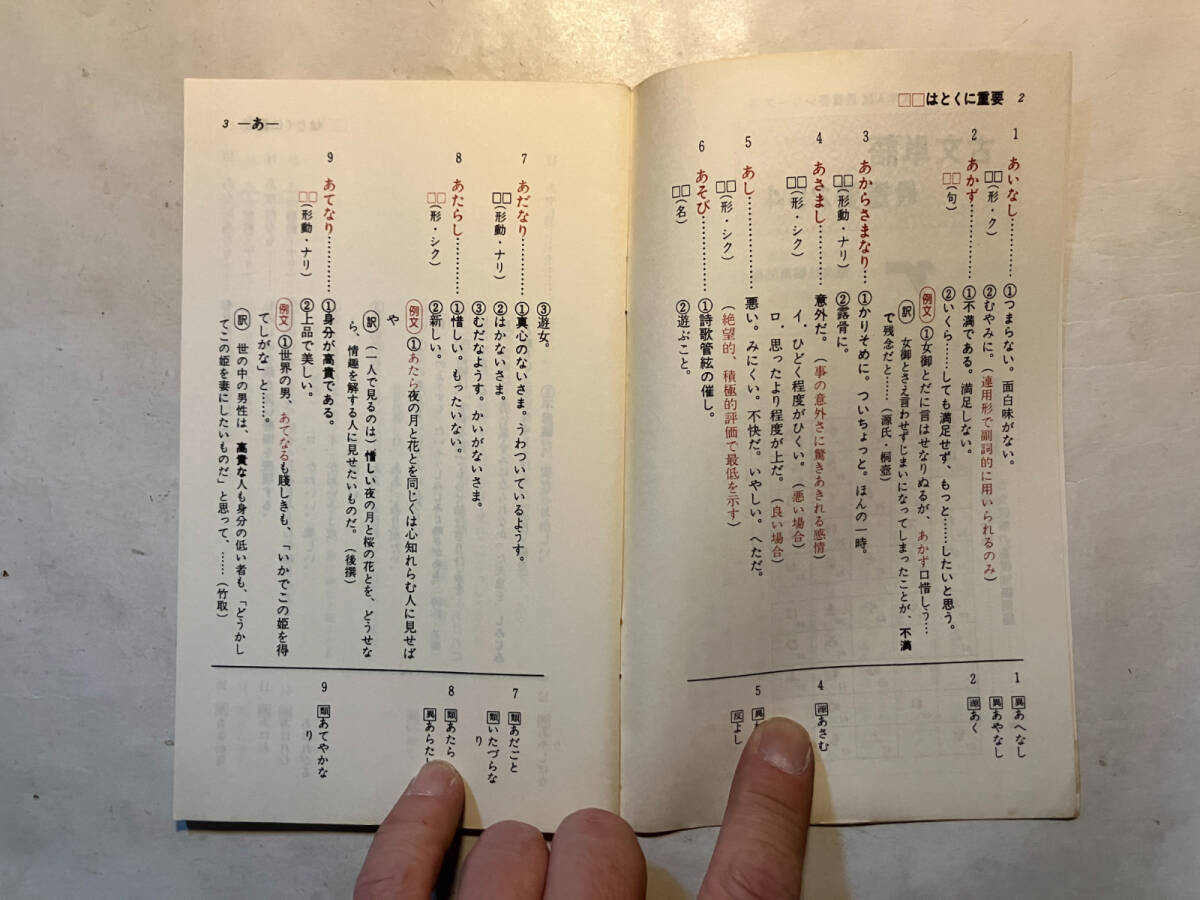 □□はとくに重要 2
1 あいなし………… ①つまらない。面白味がない。
□□(形・ク) ②むやみに。(連用形で副詞的に用いられるのみ)
2 あかず………… ①不満である。満足しない。
□□(句) ②いくら……しても満足せず、もっと……したいと思う。
例文 ①女御とだに言はせなりぬるが、あかず口惜しう…
訳 女御とさえ言わせずじまいになってしまったことが、不満
で残念だと……(源氏・桐壺)
3 あからさまなり…… ①かりそめに。ついちょっと。ほんの一時。
□□(形動・ナリ) ②露骨に。
4 あさまし………… 意外だ。(事の意外さに驚きあきれる感情)
□□(形・シク) イ．ひどく程度がひくい。(悪い場合)
ロ．思ったより程度が上だ。(良い場合)
5 あし………… 悪い。みにくい。不快だ。いやしい。へただ。
□□(形・シク) (絶望的、積極的評価で最低を示す)
6 あそび………… ①詩歌管絃の催し。
□□(名) ②遊ぶこと。
1 異あへなし
異あやなし
2 源あく
4 源あさむ
5 異
反よし
3 ―あ―
③遊女。
7 あだなり………… ①真心のないさま。うわついているようす。
□□(形動・ナリ) ②はかないさま。
③むだなようす。かいがないさま。
8 あたらし………… ①惜しい。もったいない。
□□(形・シク) ②新しい。
例文 ①あたら夜の月と花とを同じくは心知れらむ人に見せば
や
訳 (一人で見るのは)惜しい夜の月と桜の花とを、どうせな
ら、情趣を解する人に見せたいものだ。(後撰)
9 あてなり………… ①身分が高貴である。
□□(形動・ナリ) ②上品で美しい。
例文 ①世界の男、あてなるも賤しきも、「いかでこの姫を得
てしがな」と……。
訳 世の中の男性は、高貴な人も身分の低い者も、「どうかし
てこの姫を妻にしたいものだ」と思って、……(竹取)
7 類あだこと
類いたづらな
り
8 類あたら
異あらたし
9 類あてやかな
り